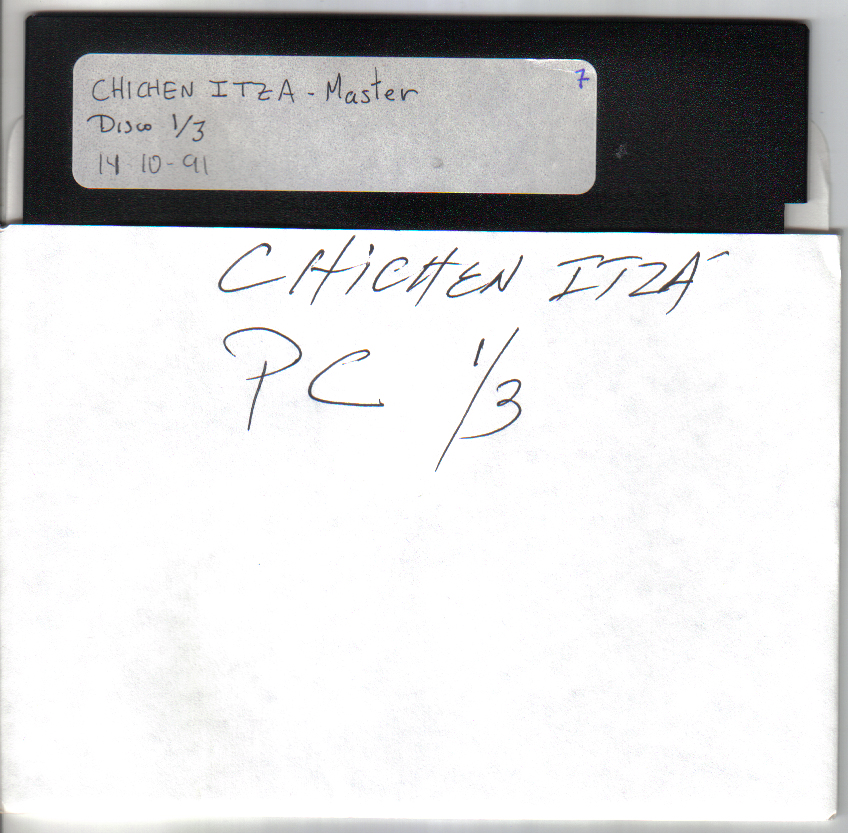 CHICHEN ITZA - Master
7
Disco 1/3
14-10-91
CHiCHEN ITZÁ
PC 1/3